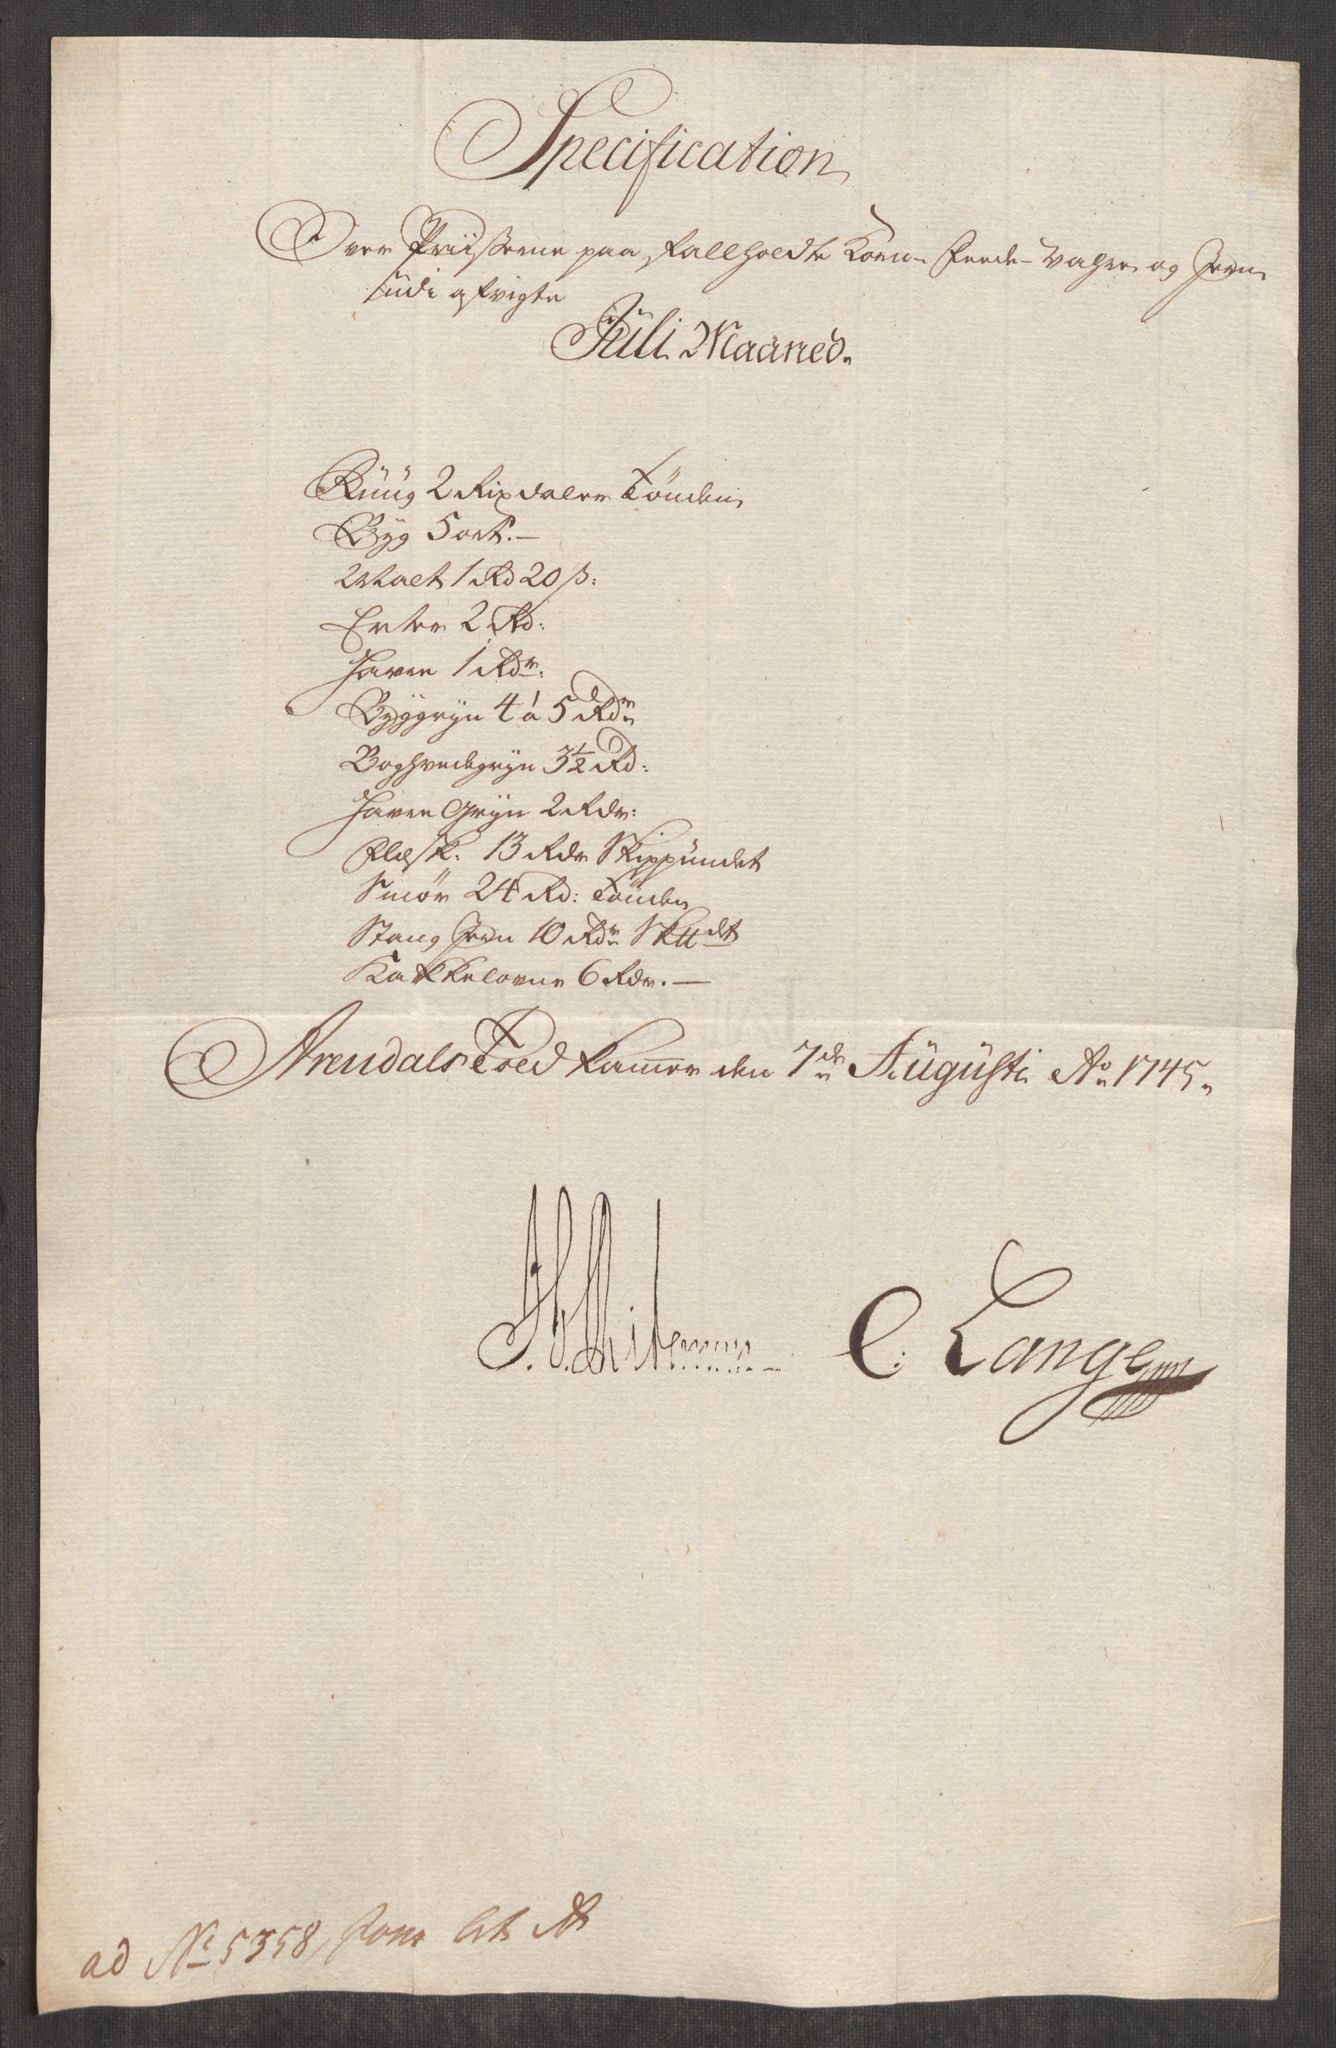 Specification
Over Priiserne paa faldholdte Korn- Feede-Vahre og Jern
udi afvigte
Juli Maaned.
Rüüg 2 Rixdaler Tönden
Byg 5 ort.—
Malt 1 Rd 20 ß:
Erter 2 Rd:
Havre 1 Rdr:
Byggryn 4 à 5 Rdr
Boghvedegryn 3½ Rd:
Havre Gryn 2 Rdr:
Flæsk. 13 Rdr Skippundet
Smör 24 Rd: Tönden
Stang Jern 10 Rdr Sk℔det
Kakkelovne 6 Rdr.—
Arendals Told Kamer den 7de Augusti Ao 1745.
C. Lange
ad No 5358, Lit A